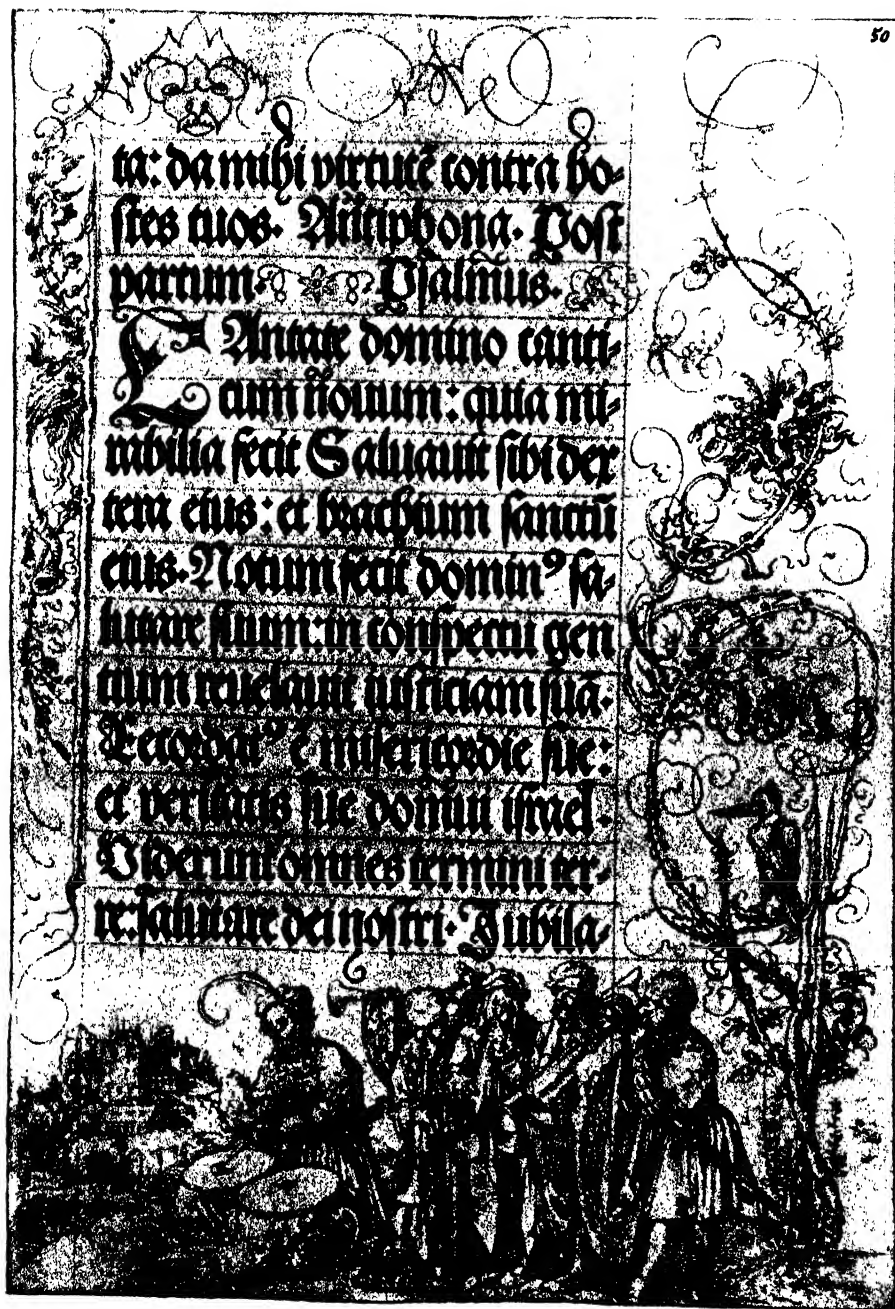 50
ta: da mihi virtutē contra ho-
stes tuos. Antiphona. Post
partum. Psalmus.
CAntate domino canti-
cum nouum: quia mi-
rabilia fecit Saluauit sibi dex
tera eius: et brachium sanctū
eius. Notum fecit domin⁹ sa-
lutare suum: in conspectu gen
tium reuelauit iusticiam suā.
Recordat⁹ ē misericordie sue:
et veritatis sue domui israel.
Viderunt omnes termini ter-
re: salutare dei nostri. Jubila-